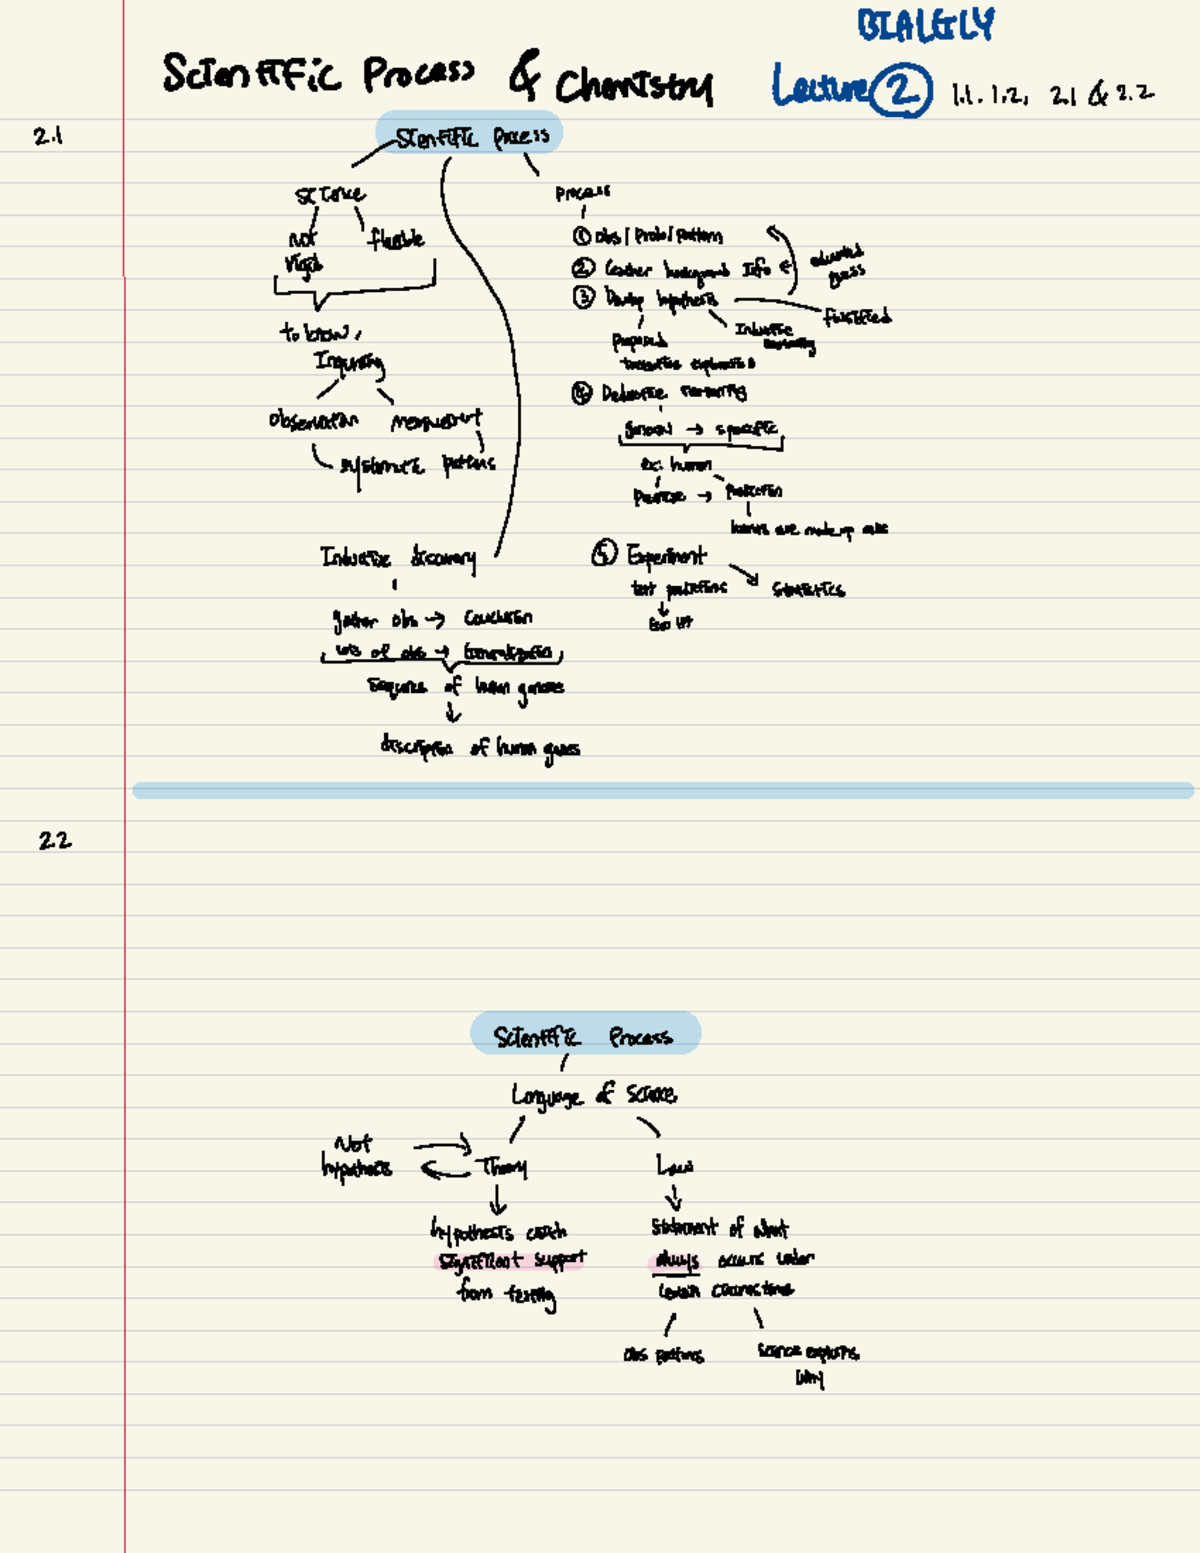 Scientific Process & Chemistry
Lecture 2 1.1, 1.2, 2.1 & 2.2
2.1
Scientific Process
Science
not rigid
flexible
to know,
Inquiring
observation
measurement
systematic patterns
Inductive discovery
gather obs → Conclusion
lots of obs → Generalization
Sequence of human genome
↓
description of human genes
Process
① obs / Prob / pattern
② Gather background Info
educated guess
③ Develop hypothesis
falsified
Proposed
Inductive reasoning
tentative explanation
④ Deductive reasoning
general → specific
ex: human
Premise → Prediction
humans are made up cells
⑤ Experiment
test predictions
Statistics
2.2
Scientific Process
Language of Science
Not hypothesis
Theory
Law
hypothesis with
significant support
from testing
Statement of what
always occurs under
certain
obs patterns
Science explains
why